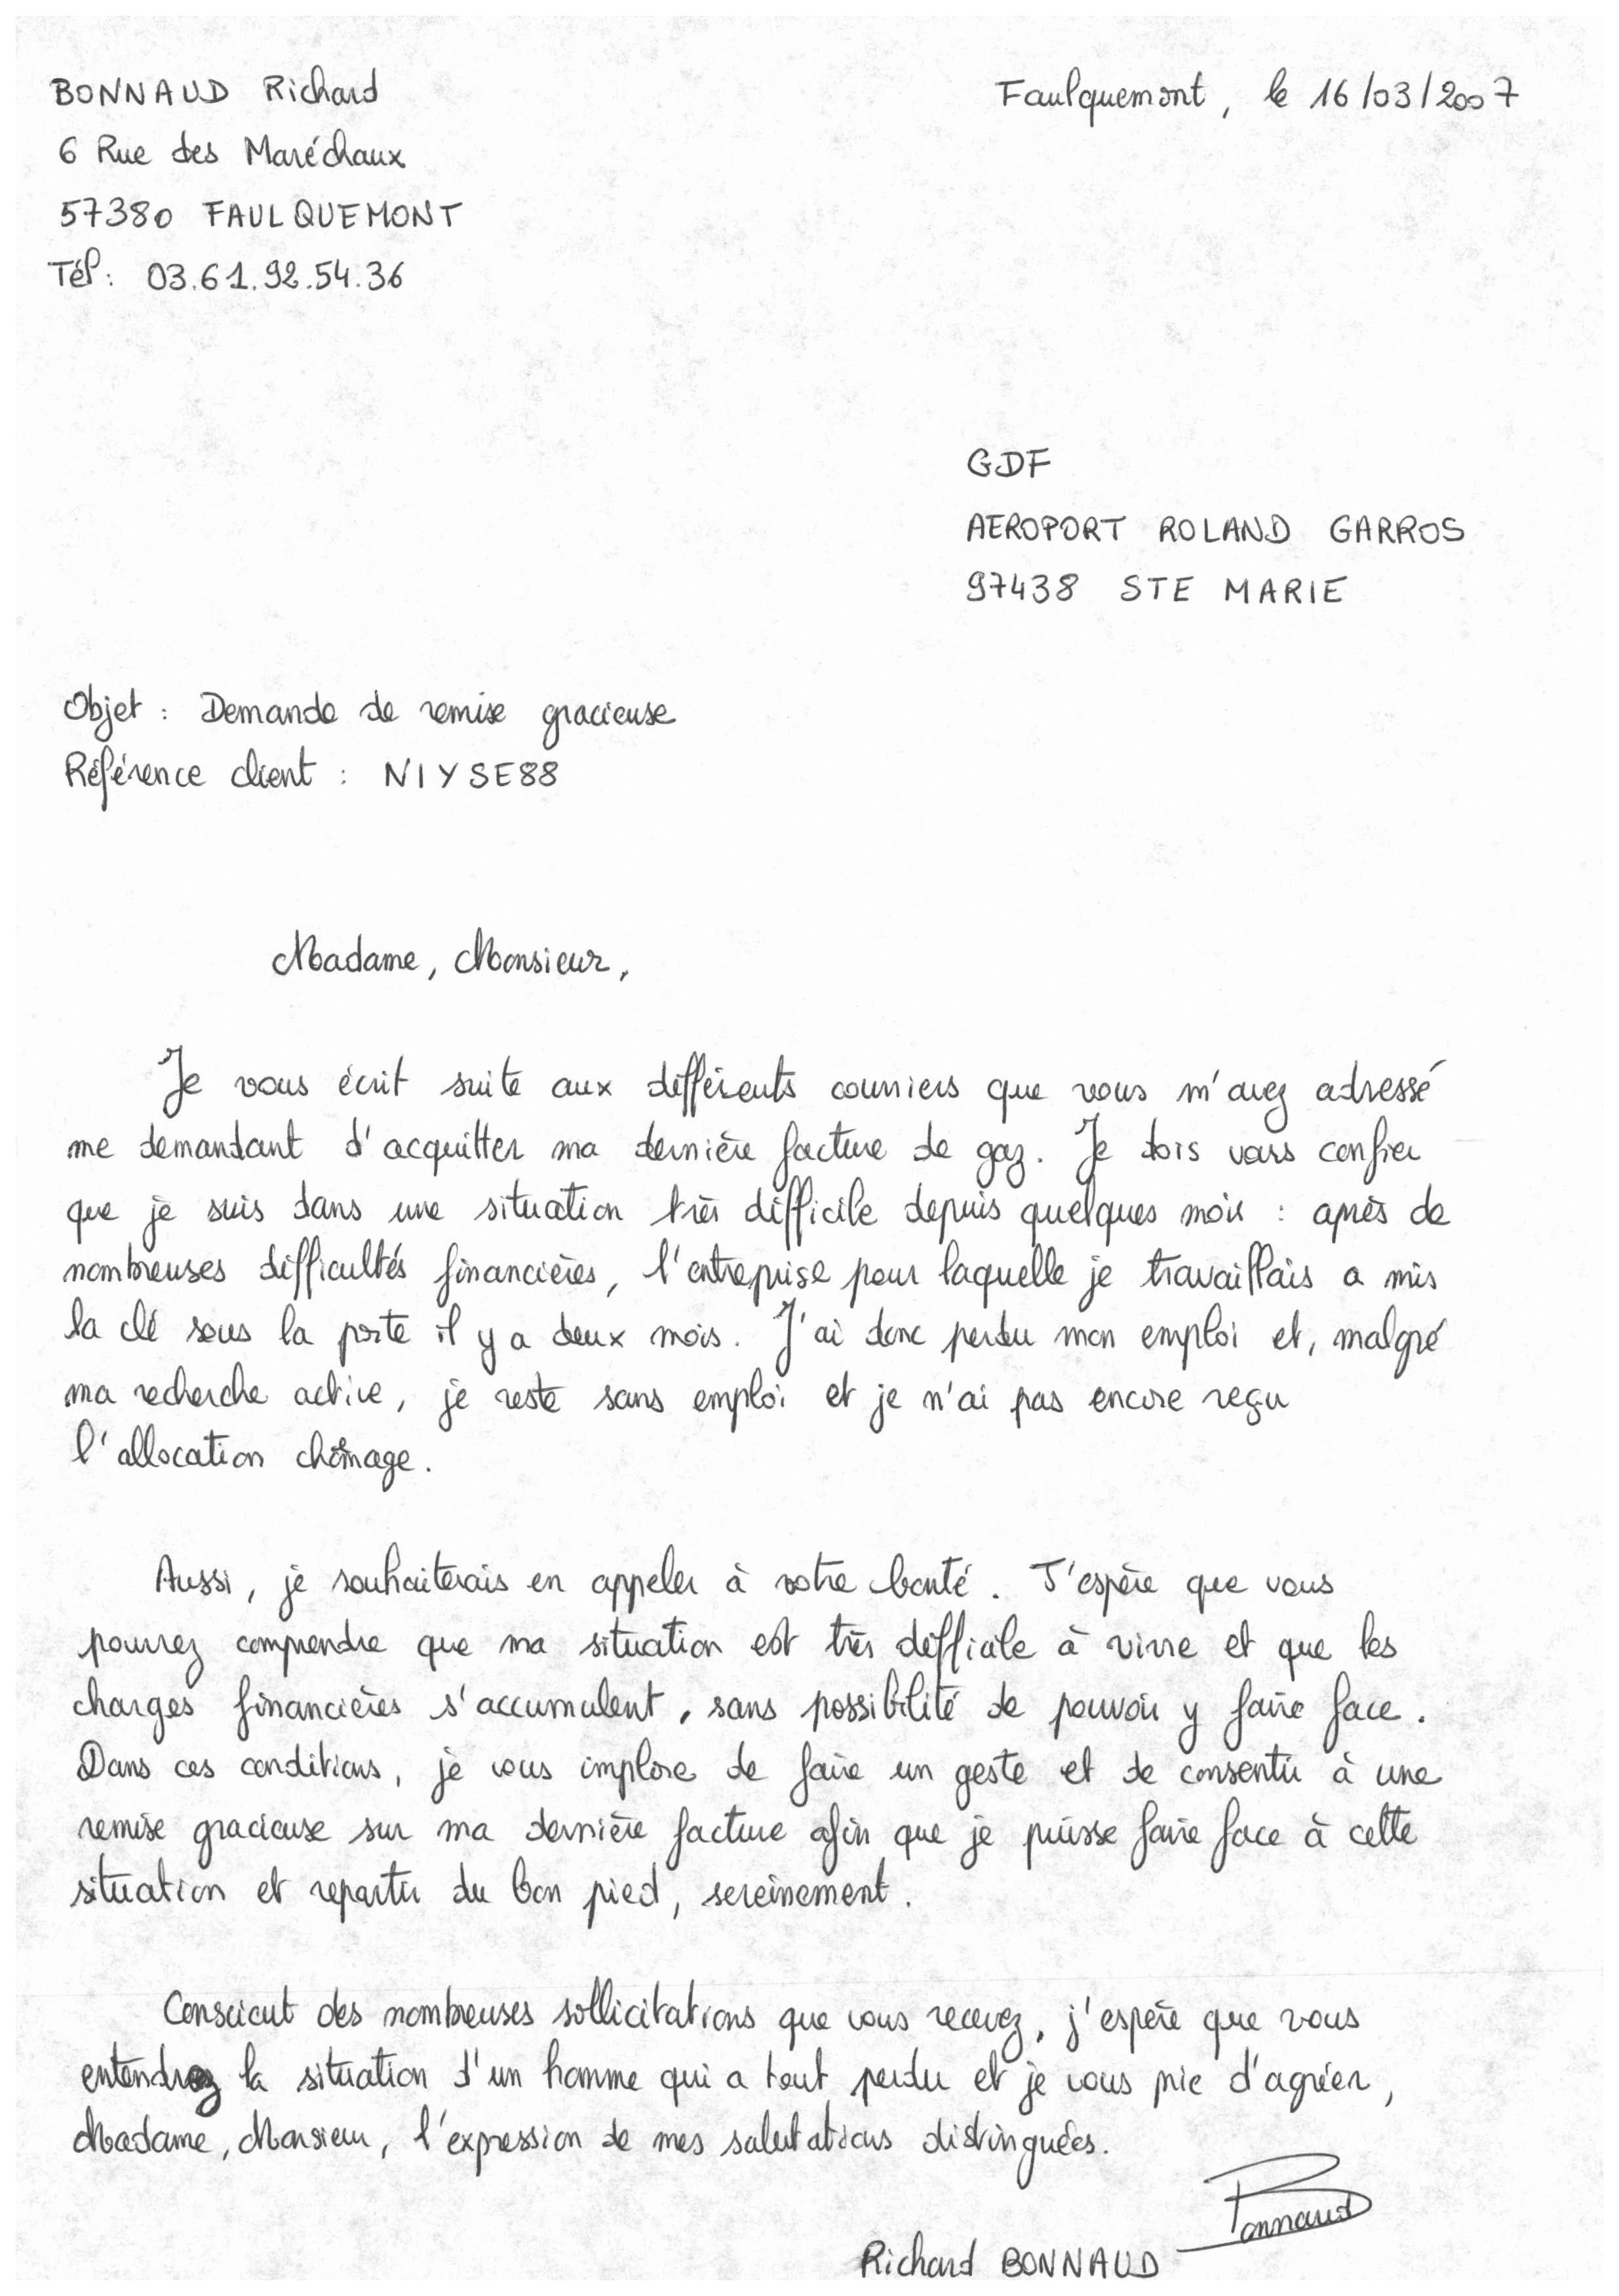 BONNAUD Richard
Faulquemont, le 16/03/2007
6 Rue des Maréchaux
57380 FAULQUEMONT
Tél: 03.61.92.54.36
GDF
AEROPORT ROLAND GARROS
97438 STE MARIE
Objet : Demande de remise gracieuse
Référence client : NIYSE88
Madame, Monsieur,
Je vous écrit suite aux différents courriers que vous m'avez adressé
me demandant d'acquitter ma dernière facture de gaz. Je dois vous confier
que je suis dans une situation très difficile depuis quelques mois : après de
nombreuses difficultés financières, l'entreprise pour laquelle je travaillais a mis
la clé sous la porte il y a deux mois. J'ai donc perdu mon emploi et, malgré
ma recherche active, je reste sans emploi et je n'ai pas encore reçu
l'allocation chômage.
Aussi, je souhaiterais en appeler à votre bonté. J'espère que vous
pourrez comprendre que ma situation est très difficile à vivre et que les
charges financières s'accumulent, sans possibilité de pouvoir y faire face.
Dans ces conditions, je vous implore de faire un geste et de consentir à une
remise gracieuse sur ma dernière facture afin que je puisse faire face à cette
situation et repartir du bon pied, sereinement.
Conscient des nombreuses sollicitations que vous recevez, j'espère que vous
entendrez la situation d'un homme qui a tout perdu et je vous prie d'agréer,
Madame, Monsieur, l'expression de mes salutations distinguées.
Bonnaud
Richard BONNAUD